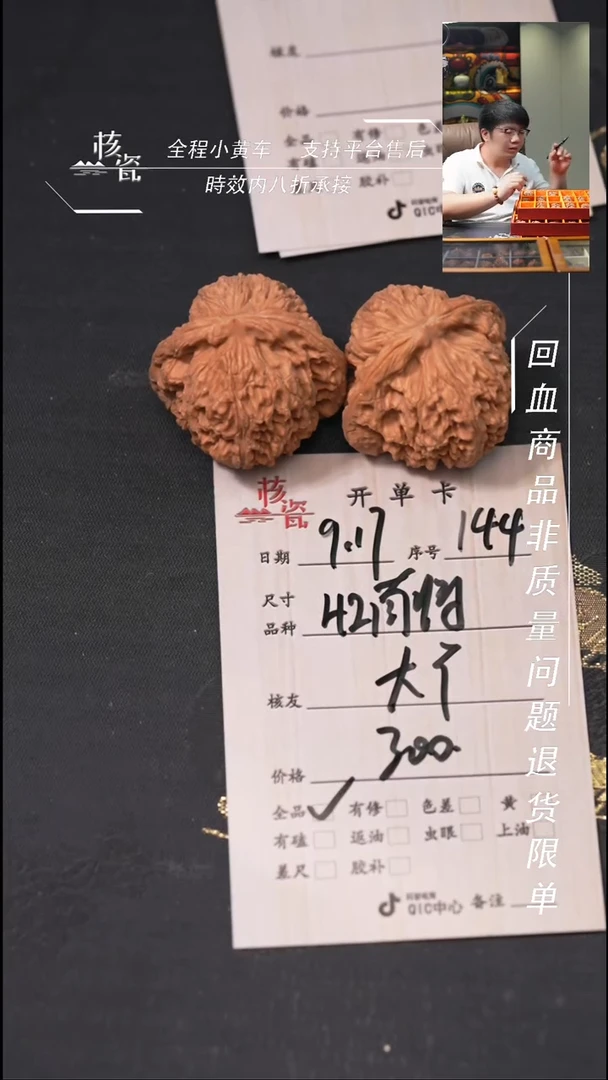 硬度
价格
全品 有修 色差
胶补
QIC
核瓷
全程小黄车 支持平台售后
時效内八折承接
回血商品非质量问题退货限单
核瓷 开单卡
日期 9.17 序号 144
尺寸
品种 42
核友 大丁
价格 300
全品✓ 有修 色差 黄
有磕 返油 虫眼 上油
差尺 胶补
抖音电商
QIC中心 备注